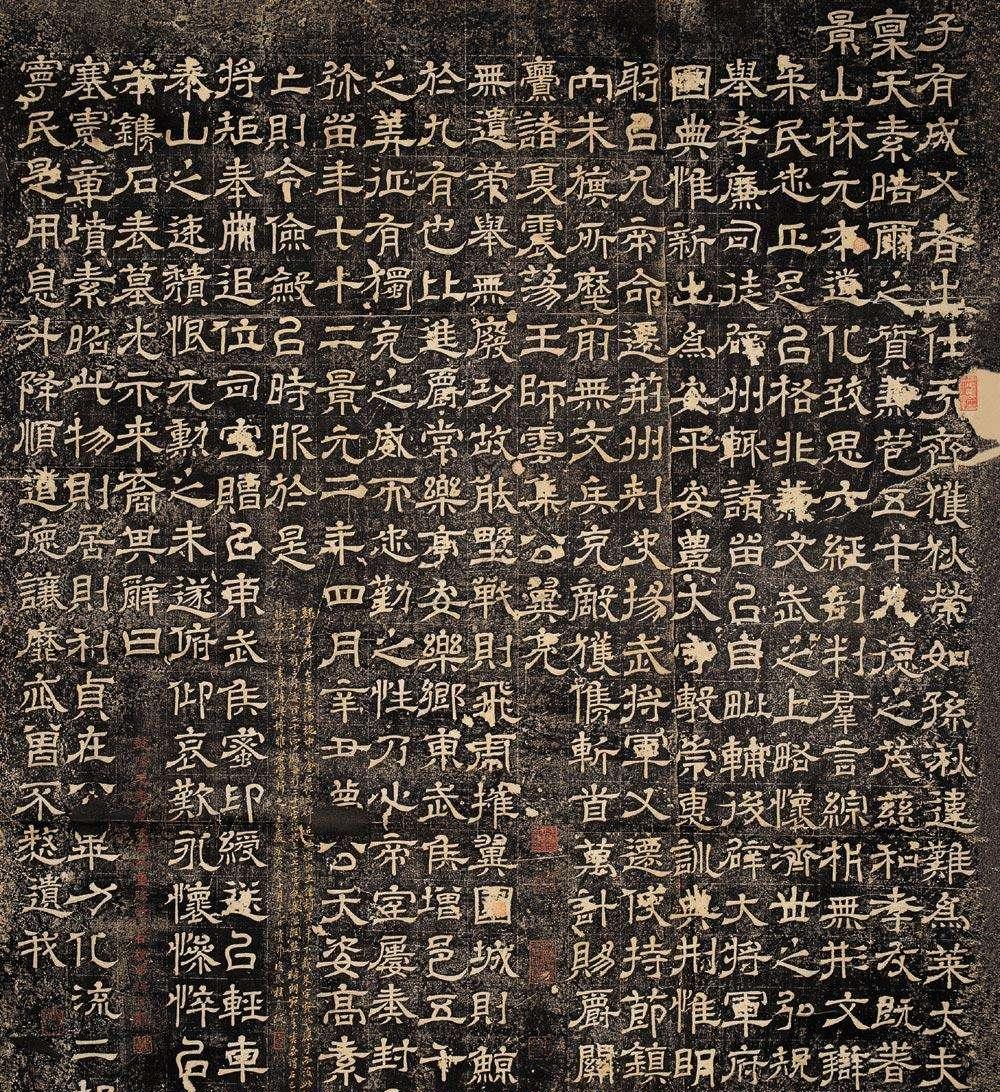 子有成父者出仕于齊獲狄榮如孫湫違難為萊大夫
稟天素皓爾之質兼苞五才九德之茂慈和孝友既著
景山林元本道化致思六經剖判羣言綜析無形文辯
民忠正足以格非兼文武之上略懷濟世之弘規
舉孝廉司徒辟州輒請留以自毗輔後辟大將軍府
國典惟新出為安平安豐太守敷崇惠訓典荊惟明
躬以允帝命遷荊州刺史揚武將軍又遷使持節鎮
內朱旗所麾前無交兵克敵獲儁斬首萬計賜爵關
釁諸夏震蕩王師雲集公翼亮
無遺策舉無廢功故能野戰則飛虎摧翼圍城則鯨
於九有也比進爵常樂亭安樂鄉東武侯增邑五千
之美征有獨克之威而忠勤之性乃心帝室屢奏封
弥留年七十二景元二年四月辛丑薨公天姿高素
亡則令儉斂以時服於是
將矩奉冊追位司空贈以東武侯蜜印綬送以輕車
泰山之速穨恨元勳之未遂俯仰哀歎永懷慘悴以
鐫石表墓光示来裔其辭曰
塞憲章墳素昭此物則居則利貞在公化流二
寧民是用息升降順道德讓靡忒曾不憖遺我